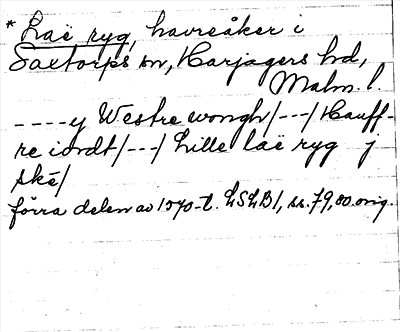 *Laë ryg, havreåker i
Saxtorps sn, Harjagers hd,
Malm. l.
----y Westre wongh/---/Hauff-
re iordt/---/Lille laë ryg j
skë/
förra delen av 1570-t. LSLB1, ss. 79, 80. orig.